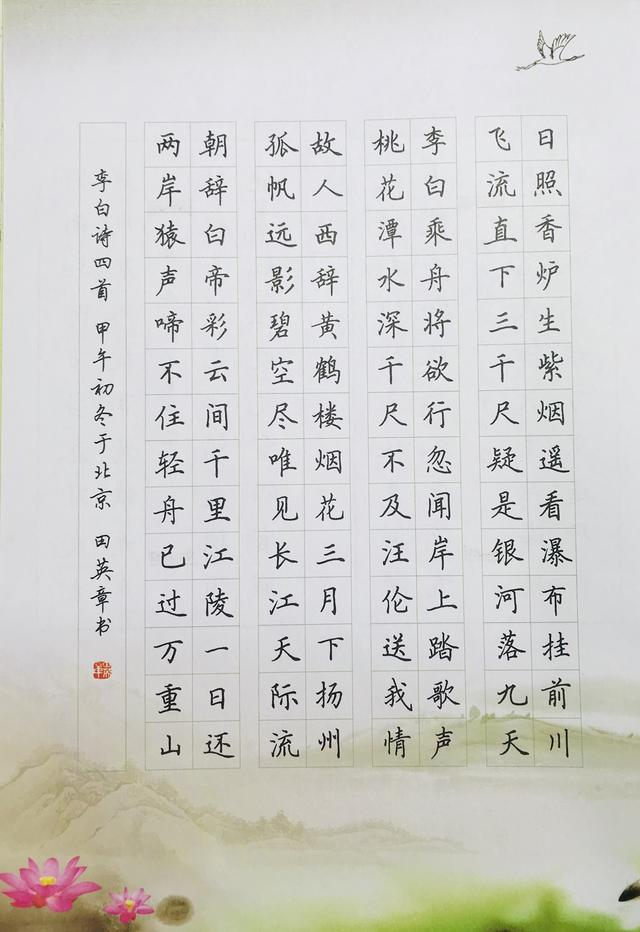 日照香炉生紫烟遥看瀑布挂前川
飞流直下三千尺疑是银河落九天
李白乘舟将欲行忽闻岸上踏歌声
桃花潭水深千尺不及汪伦送我情
故人西辞黄鹤楼烟花三月下扬州
孤帆远影碧空尽唯见长江天际流
朝辞白帝彩云间千里江陵一日还
两岸猿声啼不住轻舟已过万重山
李白诗四首 甲午初冬于北京 田英章书